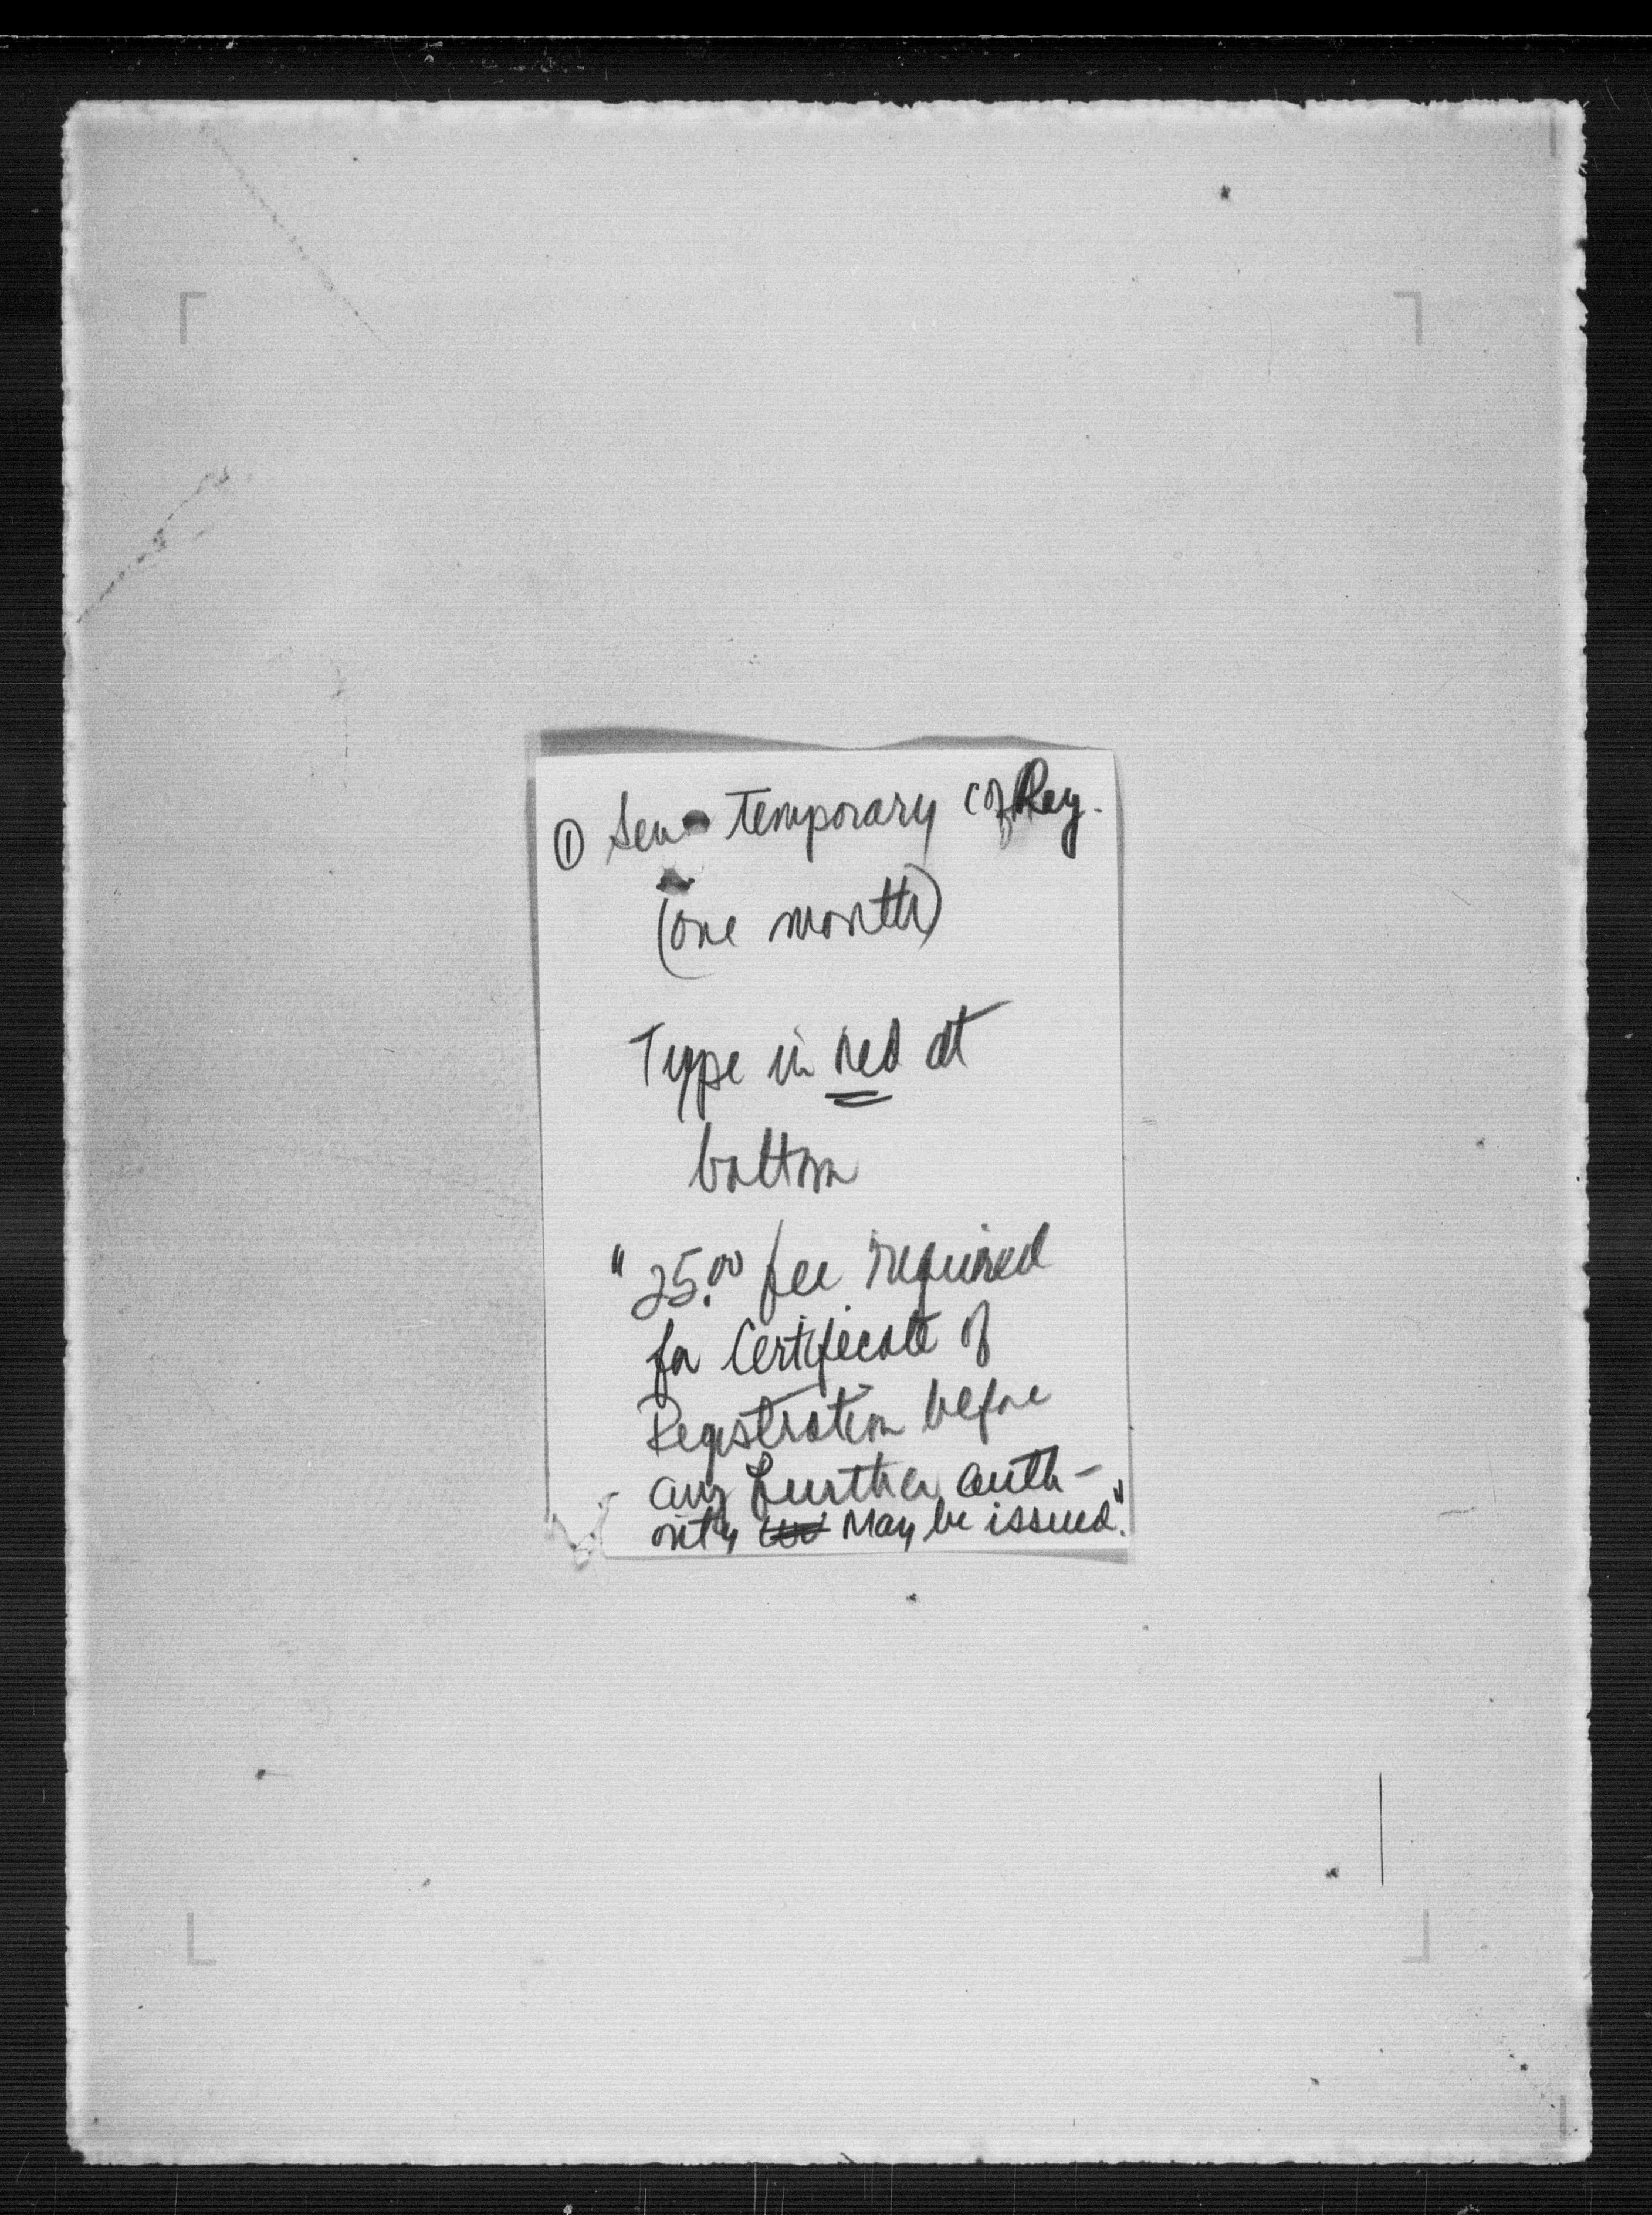 ① Sen Temporary C of Reg.
(one month)
Type in red at
bottom
"25.00 fee required
for Certificate of
Registration before
any further auth-
ority may be issued."